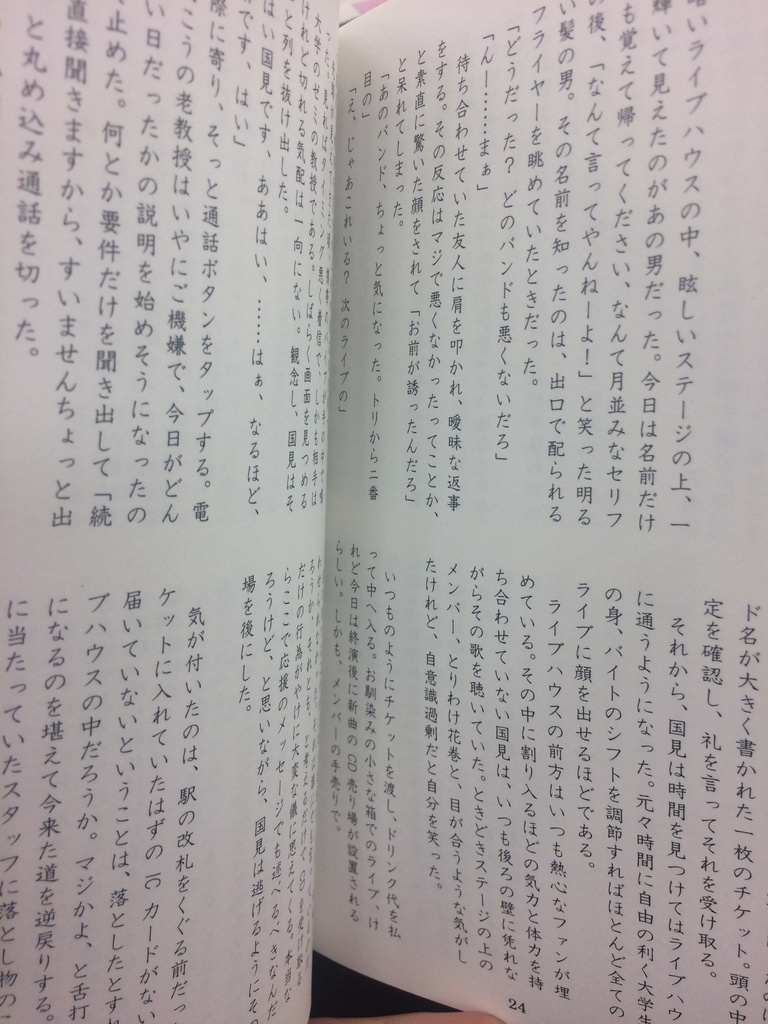 暗いライブハウスの中、眩しいステージの上、一
輝いて見えたのがあの男だった。今日は名前だけ
も覚えて帰ってください、なんて月並みなセリフ
の後、「なんて言ってやんねーよ!」と笑った明る
い髪の男。その名前を知ったのは、出口で配られる
フライヤーを眺めていたときだった。
「どうだった? どのバンドも悪くないだろ」
「んー……まぁ」
待ち合わせていた友人に肩を叩かれ、曖昧な返事
をする。その反応はマジで悪くなかったってことか、
と素直に驚いた顔をされて「お前が誘ったんだろ」
と呆れてしまった。
「あのバンド、ちょっと気になった。トリから二番
目の」
「え、じゃあこれいる? 次のライブの」
ド名が大きく書かれた一枚のチケット。頭の中
定を確認し、礼を言ってそれを受け取る。
それから、国見は時間を見つけてはライブハウ
に通うようになった。元々時間に自由の利く大学生
の身、バイトのシフトを調節すればほとんど全ての
ライブに顔を出せるほどである。
ライブハウスの前方はいつも熱心なファンが埋
めている。その中に割り入るほどの気力と体力を持
ち合わせていない国見は、いつも後ろの壁に凭れな
がらその歌を聴いていた。ときどきステージの上の
メンバー、とりわけ花巻と、目が合うような気がし
たけれど、自意識過剰だと自分を笑った。
いつものようにチケットを渡し、ドリンク代を払
って中へ入る。お馴染みの小さな箱でのライブ、け
れど今日は終演後に新曲のCD売り場が設置される
らしい。しかも、メンバーの手売りで。
24
大学のゼミの教授である。しばらく画面を見つめる
けれど切れる気配は一向にない。観念し、国見はそ
っと列を抜け出した。
「はい国見です、ああはい、……はぁ、なるほど、
です、はい」
際に寄り、そっと通話ボタンをタップする。電
こうの老教授はいやにご機嫌で、今日がどん
い日だったかの説明を始めそうになったの
止めた。何とか要件だけを聞き出して「続
直接聞きますから、すいませんちょっと出
と丸め込み通話を切った。
だけの行為がやけに大変な儀に思えてくる。本当な
らここで応援のメッセージでも述べるべきなんだ
ろうけど、と思いながら、国見は逃げるようにそ
場を後にした。
気が付いたのは、駅の改札をくぐる前だっ
ケットに入れていたはずのICカードがない
届いていないということは、落としたとすれ
ブハウスの中だろうか。マジかよ、と舌打
になるのを堪えて今来た道を逆戻りする。
に当たっていたスタッフに落とし物の